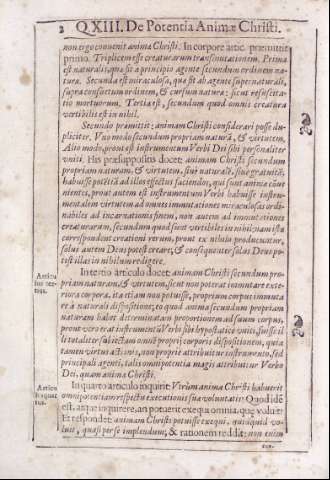 2 Q. XIII. De Potentia Animæ Christi.
non ergo convenit animæ Christi. In corpore artic. præmittit
primo. Triplicem esse creaturarum transmutationem. Prima
est naturalis, quæ fit à principio agente secundum ordinem na-
turæ. Secunda est miraculosa, quæ fit ab agente supernaturali,
supra consuetum ordinem, & cursum naturæ: sicut resuscita-
tio mortuorum. Tertia est, secundum quod omnis creatura
vertibilis est in nihil.
Secundo præmittit: animam Christi considerari posse du-
pliciter. Uno modo secundum propriam naturã, & virtutem,
Alio modo, prout est instrumentum Verbi Dei sibi personaliter
uniti. His præsuppositis docet: animam Christi secundum
propriam naturam, & virtutem, sive naturalẽ, sive gratuitã,
habuisse potẽtiã ad illos effectus faciendos, qui sunt animæ cõve
nientes, prout autem est instrumentum Verbi habuisse instru-
mentalem virtutem ad omnes immutationes miraculosas ordi-
nabiles ad incarnationis finem, non autem ad immutationes
creaturarum, secundum quod sunt vertibiles in nihil, nam istæ
correspondent creationi rerum, prout ex nihilo producuntur,
solus autem Deus potest creare, & consequenter solus Deus po-
test illas in nihilum redigere.
In tertio articulo docet: animam Christi secundum pro-
priam naturam, & virtutem, sicut non poterat immutare exte-
riora corpora, ita etiam non potuisse, proprium corpus immuta
re à naturali dispositione; eo quod anima secundum propriam
naturam habet determinatam proportionem ad suum corpus,
prout vero erat instrumentũ Verbi sibi hypostaticè uniti, fuisse il
li totaliter subiectam omnẽ proprij corporis dispositionem, quia
tamen virtus actionis, non propriè attribuitur instrumento, sed
principali agenti, talis omnipotentia magis attribuitur Verbo
Dei, quam animæ Christi.
In quarto articulo inquirit: Utrùm anima Christi habuerit
omnipotentiam respectu executionis suæ voluntatis? Quod idẽ
est, atque inquirere, an potuerit exequi omnia, quæ voluit?
Et respondet: animam Christi potuisse exequi, quidquid vo-
luit, quasi per se implendum; & rationem reddit: non enim
Articu
lus ter-
tius.
Articu